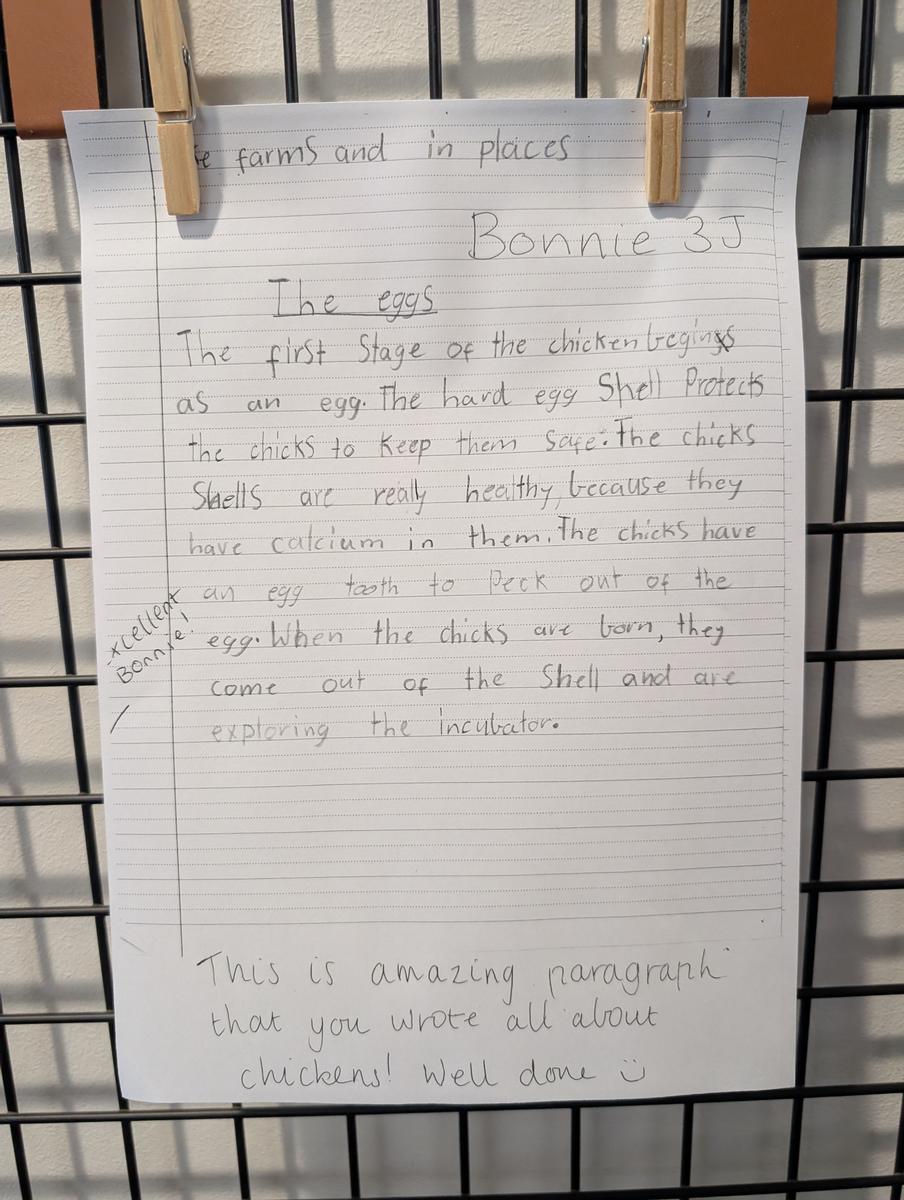 farms and in places
Bonnie 3J
The eggs
The first Stage of the chicken begings
as an egg. The hard egg Shell Protects
the chicks to Keep them Safe. The chicks
Shells are really healthy, because they
have calcium in them. The chicks have
an egg tooth to Peck out of the
egg. When the chicks are born, they
come out of the Shell and are
exploring the incubator.
xcellent
Bonnie!
This is amazing paragraph
that you wrote all about
chickens! Well done